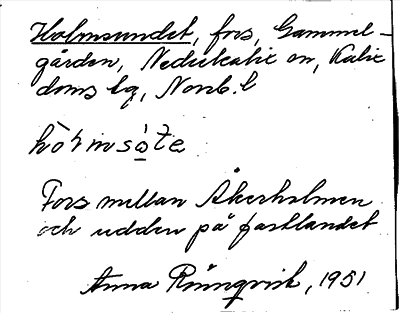 Holmsundet, fors, Gammel-
gården, Nederkalix sn, Kalix
doms lg, Norrb. l
hòḷmsòte
Fors mellan Åkerholmen
och udden på fastlandet
Anna Rönnqvist, 1951